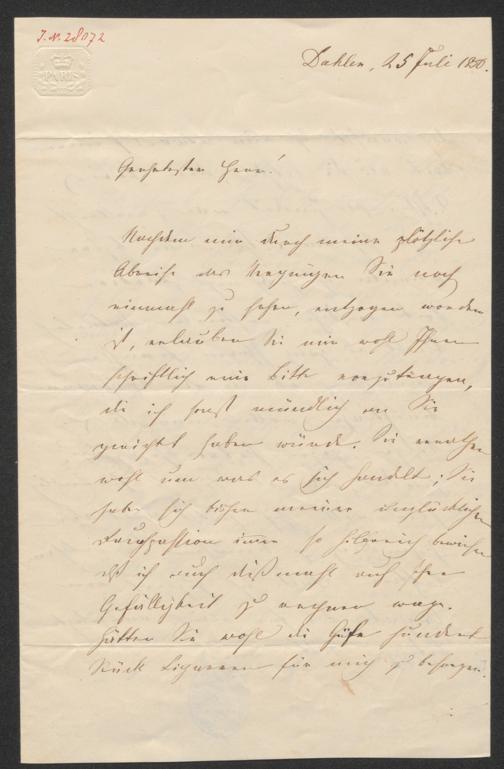 J.N. 28072
PARIS
Dahlen, 25 Juli 1850.
Geehrtester Herr!
Nachdem mir durch meine plötzliche
Abreise das Vergnügen Sie noch
einmahl zu sehen, entzogen worden
ist, erlauben Sie mir wohl Ihnen
schriftlich eine Bitte vorzutragen,
die ich sonst mündlich an Sie
gerichtet haben würde. Sie errathen
wohl um was es sich handelt; Sie
haben sich bisher meiner unglücklichen
Rauchpassion immer so hilfreich bewiesen
daß ich auch dießmahl auf Ihre
Gefälligkeit zu rechnen wage.
Hätten Sie wohl die Güte hundert
Stück Cigarren für mich zu besorgen.